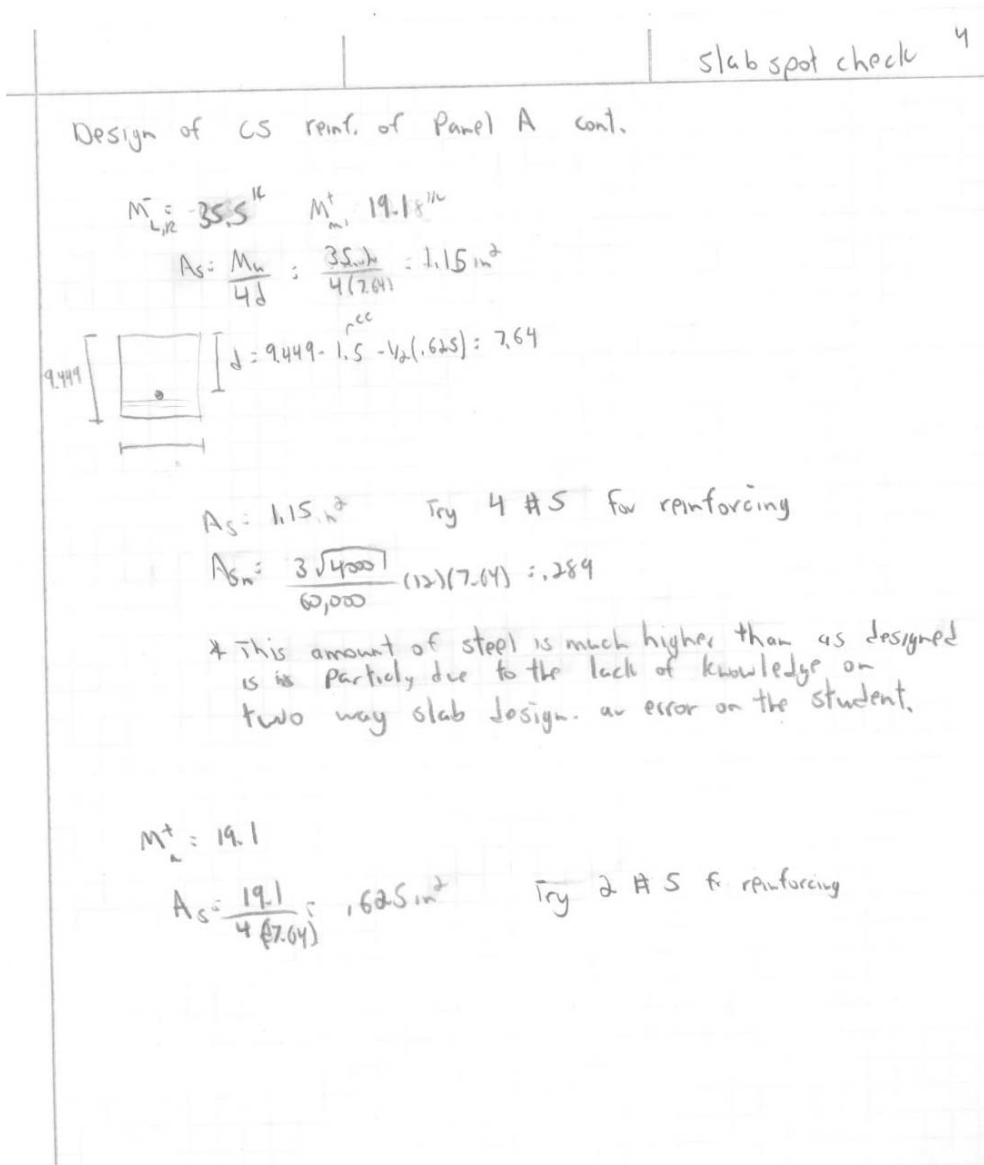 slab spot check 4
Design of CS reinf. of Panel A cont.
M⁻L,R = 35.5 'k M⁺m, 19.18 'k
As = Mu / 4d = 35.2 / 4(7.64) = 1.15 in²
cc
9.449 d = 9.449 - 1.5 - 1/2(.625) = 7.64
As = 1.15 in² Try 4 #5 for reinforcing
Asm = 3√4000 / 60,000 (12)(7.64) = .289
* This amount of steel is much higher than as designed
is is particly due to the lack of knowledge on
two way slab design. an error on the student.
M⁺m = 19.1
As = 19.1 / 4(7.64) = .625 in² Try 2 #5 for reinforcing